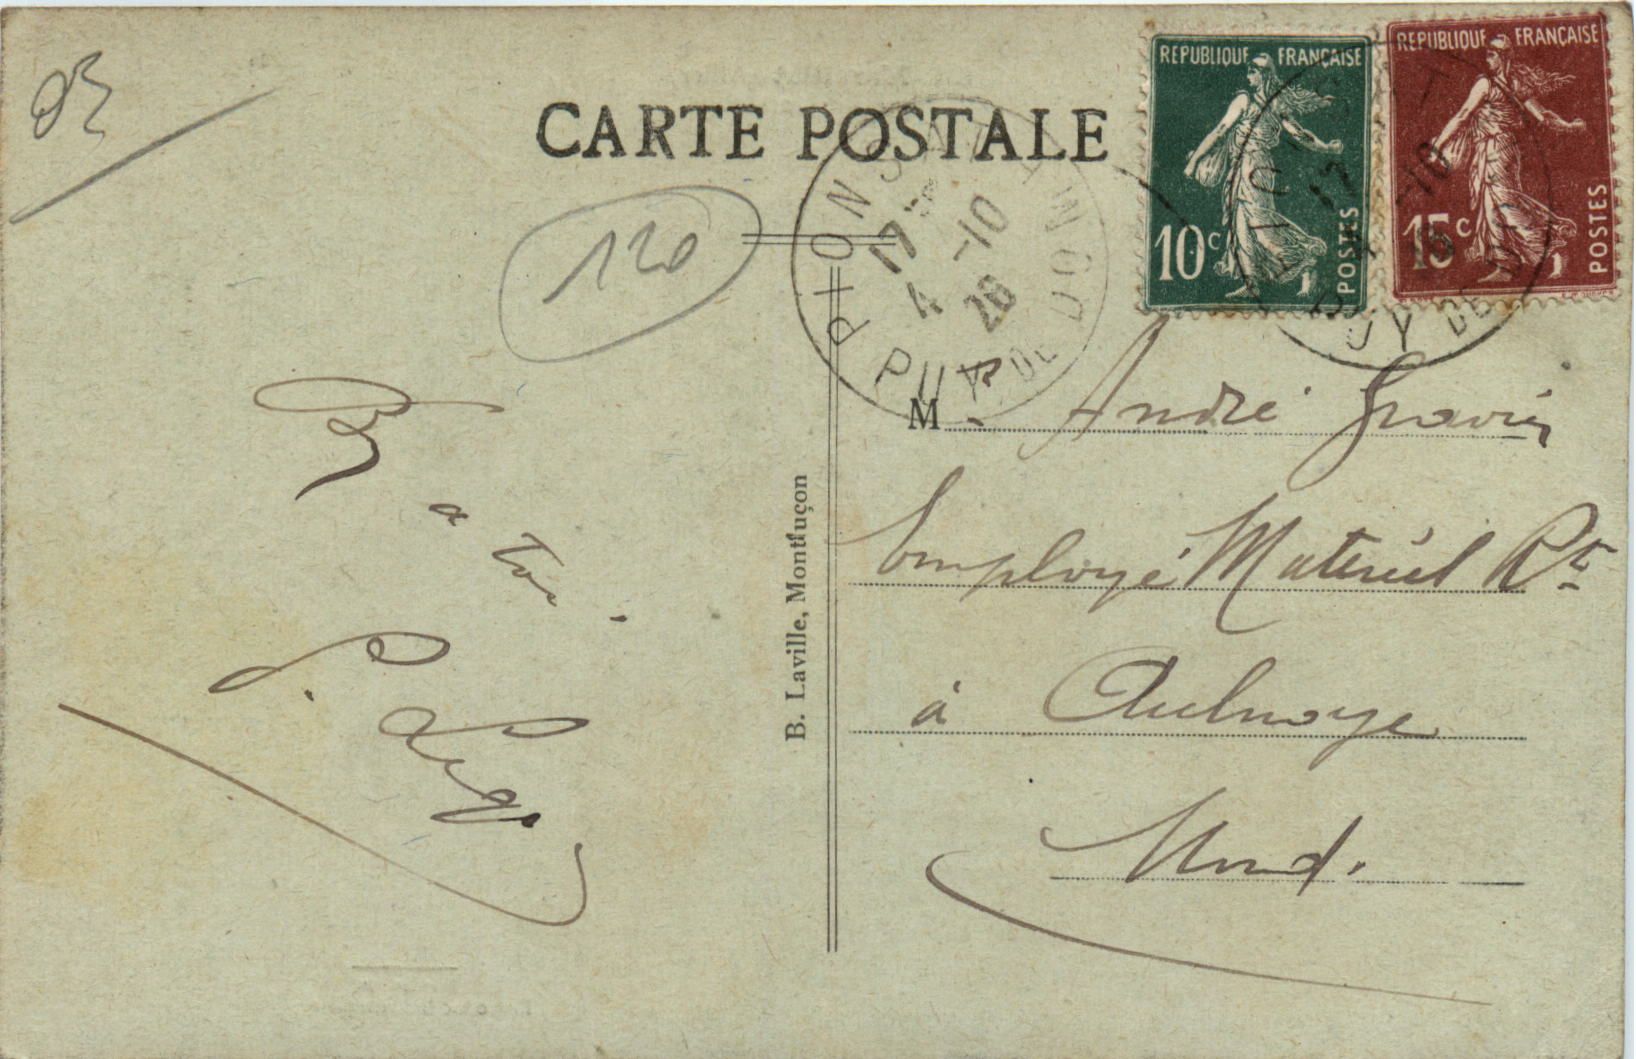 CARTE POSTALE
REPUBLIQUE FRANÇAISE
10c
POSTES
REPUBLIQUE FRANÇAISE
15c
POSTES
PIONSAT
17
4 -10
26
PUY DE DOME
120
B a toi.
M r André Gravier
Employé Matériel Rt
à Aulnoye
Nord.
B. Laville, Montluçon